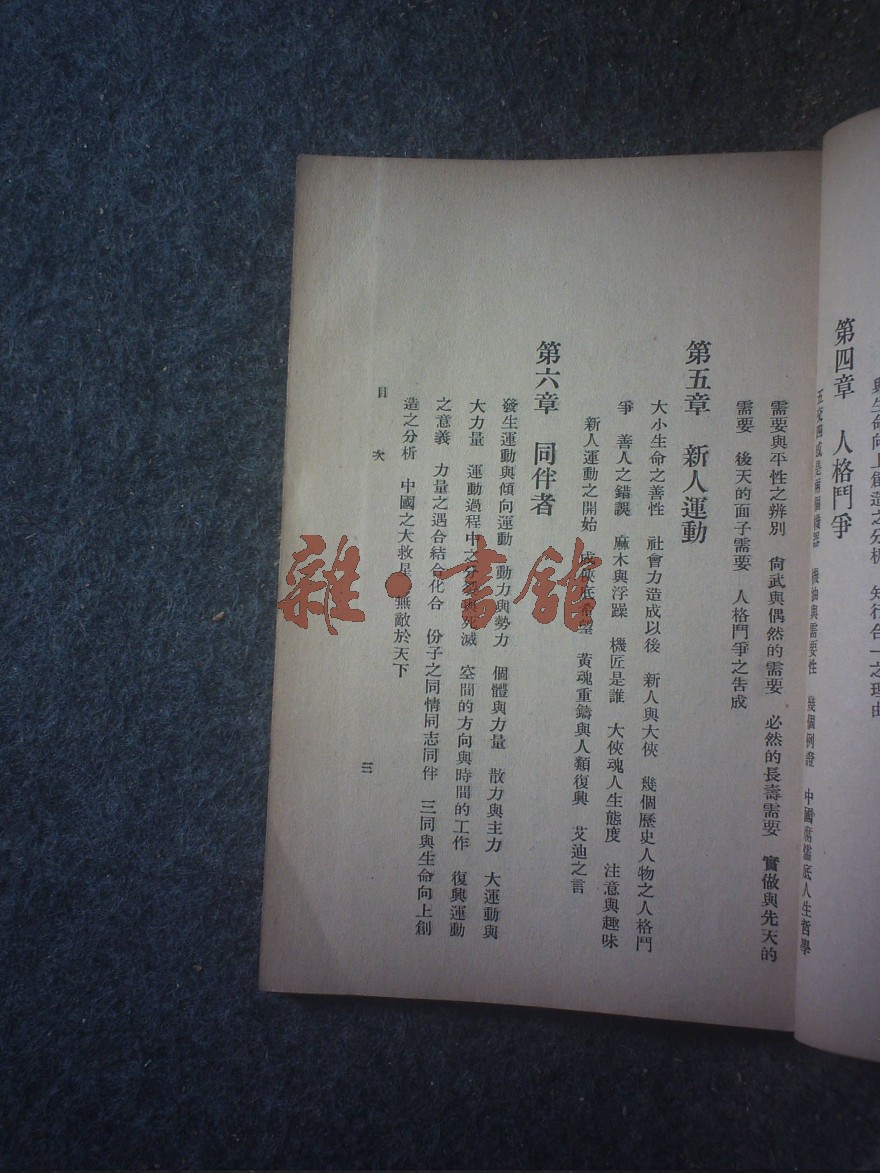 與生命向上創造之分析　知行合一之理由
第四章　人格鬥爭
機油與需要性　幾個例證　中國腐儒底人生哲學
需要與平性之辨別　尙武與偶然的需要　必然的長壽需要　實做與先天的
需要　後天的面子需要　人格鬥爭之吿成
第五章　新人運動
大小生命之善性　社會力造成以後　新人與大俠　幾個歷史人物之人格鬥
爭　善人之錯誤　麻木與浮躁　機匠是誰　大俠魂人生態度　注意與趣味
新人運動之開始　成俠底希望　黃魂重鑄與人類復興　艾迪之言
第六章　同伴者
發生運動與傾向運動　動力與勢力　個體與力量　散力與主力　大運動與
大力量　運動過程中之分裂與死滅　空間的方向與時間的工作　復興運動
之意義　力量之遇合結合化合　份子之同情同志同伴　三同與生命向上創
造之分析　中國之大救星　無敵於天下
目　次
三
雜·書館